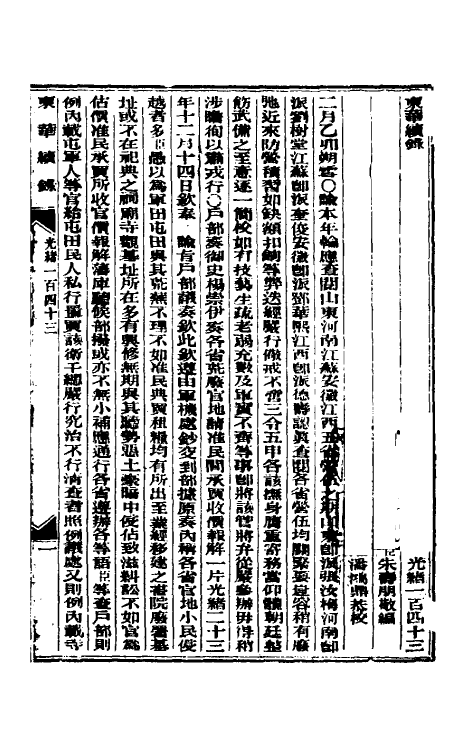 東華續錄
光緒一百四十三
臣朱壽朋敬編
潘鴻鼎恭校
二月乙卯朔雪○諭本年輪應查閱山東河南江蘇安徽江西五省營伍之期山東卽派張汝梅河南卽
派劉樹堂江蘇卽派奎俊安徽卽派鄧華熙江西卽派德壽認真查閱各省營伍均關緊要豈容稍有廢
弛近來防營積習如缺額扣餉等弊迭經嚴行儆戒不啻三令五申各該撫身膺重寄務當仰體朝廷整
飭武備之至意逐一簡校如有技藝生疏老弱充數及軍實不齊等事卽將該管將弁從嚴參辦毋得稍
涉瞻徇以肅戎行○戶部奏御史楊崇伊奏各省荒廢官地請准民間承買收價報解一片光緒二十三
年十二月十四日欽奉 諭旨戶部議奏欽此欽遵由軍機處鈔交到部據原奏內稱各省官地小民侵
越者多臣愚以為軍田屯田與其荒蕪不理不如准民典賣租糧均有所出至業經移建之書院廢署基
址或不在祀典之祠廟寺觀基址所在多有興修無期與其聽勢惡土豪暗中侵佔致滋糾訟不如官為
估價准民承買所收官價報解藩庫聽候部撥或亦不無小補應通行各省遵辦各等語臣等查戶部則
例內載屯軍人等官給屯田民人私行置買該衛千總嚴行究治不行清查者照例議處又則例內載寺
東華續錄
光緒一百四十三
一